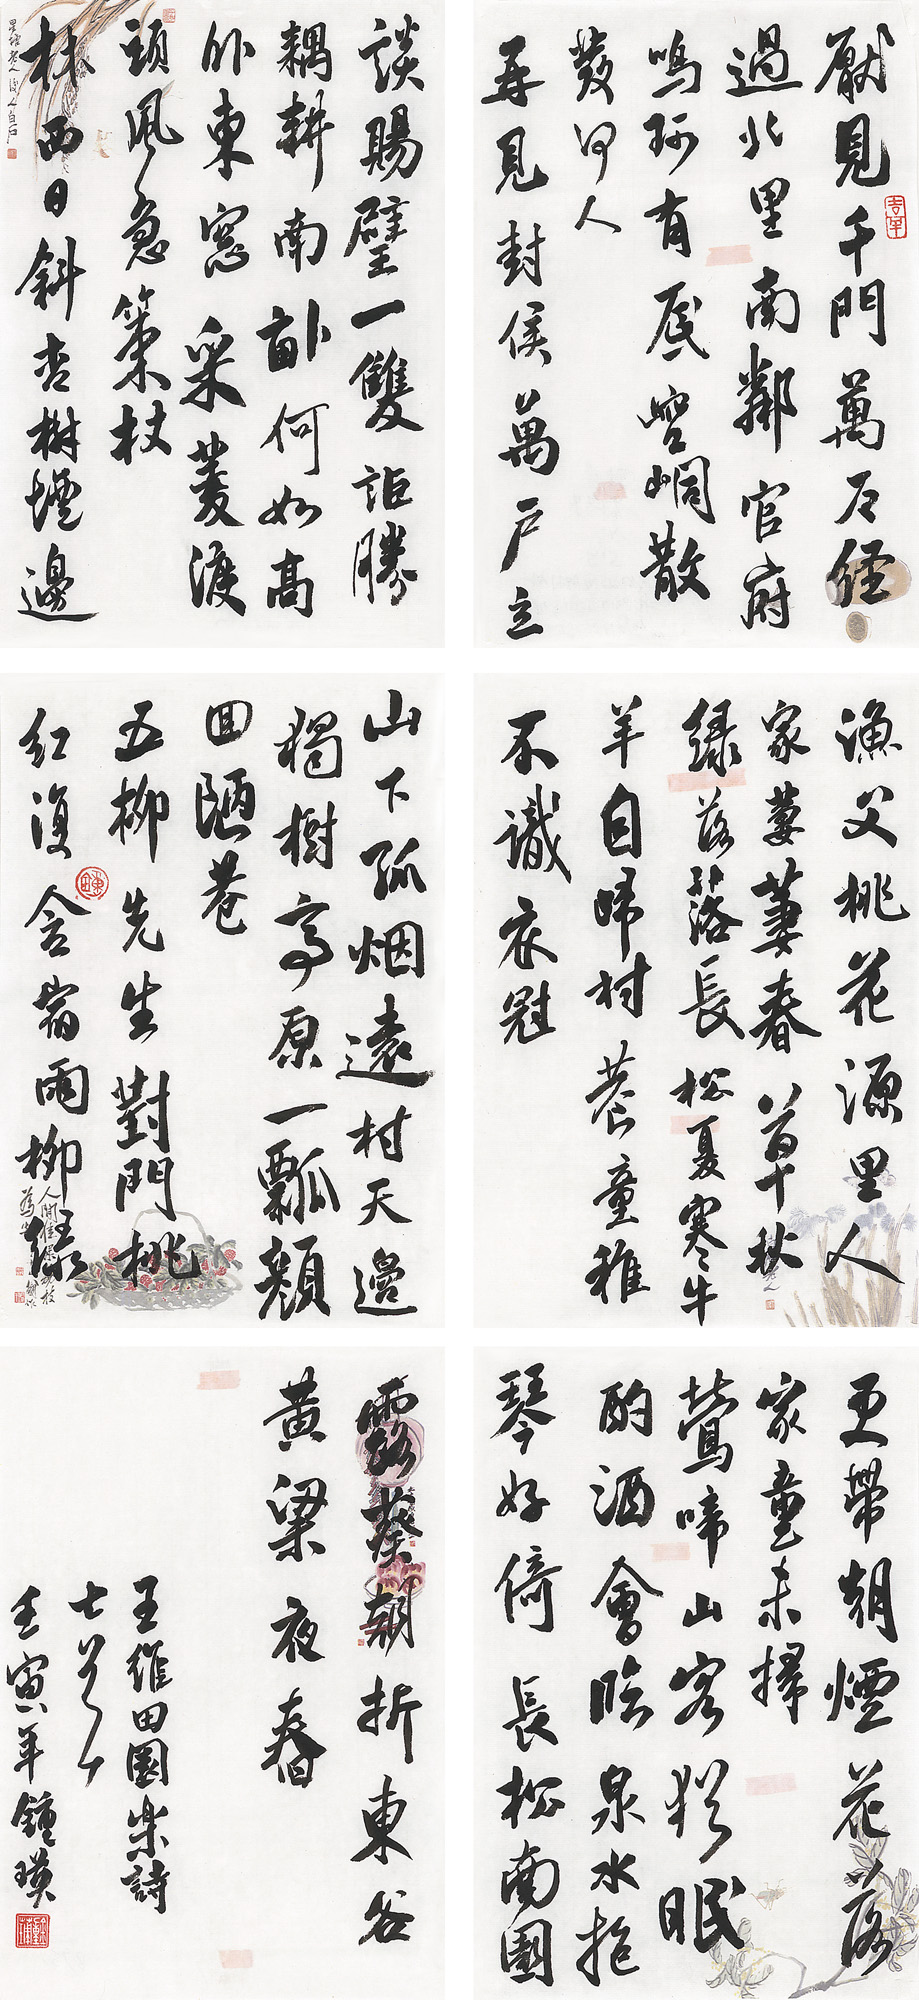 厭見千門萬户經
過北里南鄰官府
鳴珂有底崆峒散
髮何人
再見封侯萬户立
談賜璧一雙詎勝
耦耕南畝何如高
卧東窗采菱渡
頭風急策杖
林西日斜杏樹壇邊
漁父桃花源里人
家萋萋春草秋
綠落落長松夏寒牛
羊自歸村巷童稚
不識衣冠
山下孤烟遠村天邊
獨樹高原一瓢顏
回陋巷
五柳先生對門桃
紅復含宿雨柳綠
更帶朝煙花落
家童未掃
鶯啼山客猶眠
酌酒會臨泉水抱
琴好倚長松南園
露葵朝折東谷
黄粱夜舂
王維田園樂詩
七首
壬寅年鍾瑛